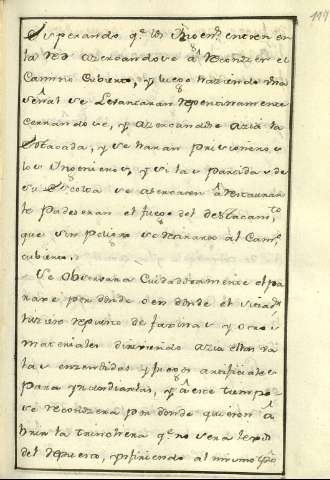 119
Esperando q.e los Ynoen.s entren en
la red acercandose â reconocer el
Camino Cubierto, y luego haziendo una
señal se Levantaran repentinamente
cerrandose, y acercandose azia la
Estacada, y se haran prisioneros
los Yngenieros, y si la partida de
su Escolta se acercaren â restaurar
le padeceran el fuego del destacam.to
que sin peligro se retirarà al Cam.o
cubierto.
Se observara Cuidadosamente el pa
rage por donde o en donde el sitiad.r
hiziere repuesto de faxinas y otros
materiales dirigiendo azia ellos ba
las encendidas y fuegos artificiales
para yncendiarlas, y â este tiempo
se reconozera por donde quieren â
brir la trinchera q.e no sera lexos
del repuesto, ynfiriendo al mismo tpõ